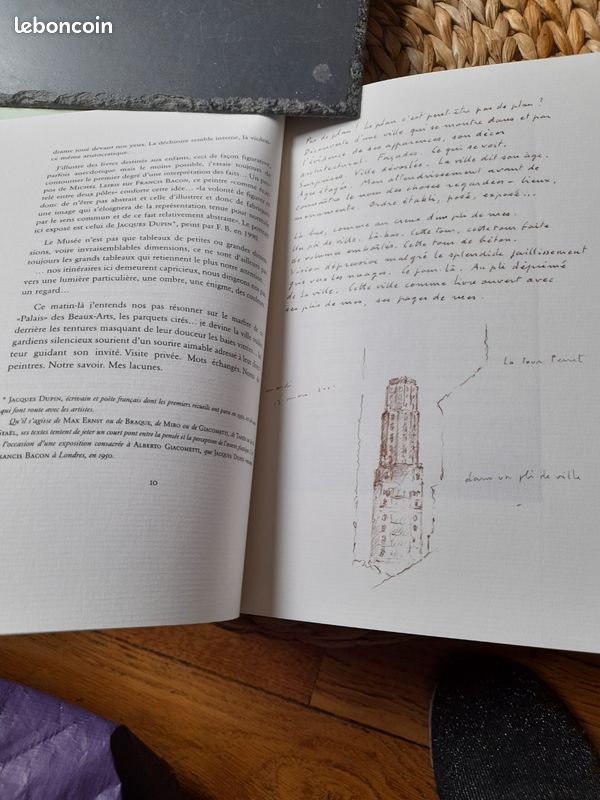 leboncoin
drame tout devant nos yeux. La déchirure semble interne, la violence
même aristocratique.
J'illustre des livres destinés aux enfants, ceci de façon figurative,
parfois anecdotique mais le moins possible, j'essaie toujours de
contourner le premier degré d'une interprétation des faits... Un pro-
pos de MICHEL LEIRIS sur FRANCIS BACON, ce peintre «comme écar-
telé entre deux pôles» conforte cette idée... «la volonté de figurer et
donc de n'être pas abstrait et celle d'illustrer et donc de fabriquer
une image qui s'éloignera de la représentation tenue pour normale
par le sens commun et de ce fait relativement abstraite». Le portrait
ici exposé est celui de JACQUES DUPIN*, peint par F. B. en 1990.
Le Musée n'est pas que tableaux de petites ou grandes dimen-
sions, voire invraisemblables dimensions, ce ne sont d'ailleurs pas
toujours les grands tableaux qui retiennent le plus notre
... nos itinéraires ici demeurent capricieux, nous dirigeons nos pas
vers une lumière particulière, une ombre, une énigme, des couleurs,
un regard...
Ce matin-là j'entends nos pas résonner sur le marbre de
«Palais» des Beaux-Arts, les parquets cirés... je devine la ville
derrière les tentures masquant de leur douceur les baies vitrées...
gardiens silencieux sourient d'un sourire aimable adressé à leur
teur guidant son invité. Visite privée. Mots échangés. Noms
peintres. Notre savoir. Mes lacunes.
* JACQUES DUPIN, écrivain et poète français dont les premiers recueils ont paru en 1950,
qui font route avec les artistes.
Qu'il s'agisse de MAX ERNST ou de BRAQUE, de MIRO ou de GIACOMETTI, de
STAËL, ses textes tentent de jeter un court pont entre la pensée et la perception de
l'occasion d'une exposition consacrée à ALBERTO GIACOMETTI, que JACQUES DUPIN
FRANCIS BACON à Londres, en 1950.
10
Pas de plan! Le plan c'est peut-être pas de plan?
d'une ville qui se montre dans et par
l'évidence de ses apparences, son décor
architectural. Façades. Ce qui se voit.
Surprises. Ville dévoilée. La ville dit son âge.
Âge étagé. Mon attendrissement avant de
connaître le nom des choses regardées - lieux,
monuments. Ordre établi, posé, exposé...
Là-bas, comme au creux d'un pli de mes
Un pli de ville. Là-bas. Cette tour, cette tour faite
de volumes emboîtés. Cette tour de béton.
Vision dépressive malgré le splendide jaillissement
que vers les nuages. Ce jour-là. Au pli déprimé
de la vide. Cette ville comme livre ouvert avec
ses plis de mes, ses pages de mes
La tour Perret
mars
dans un pli de ville